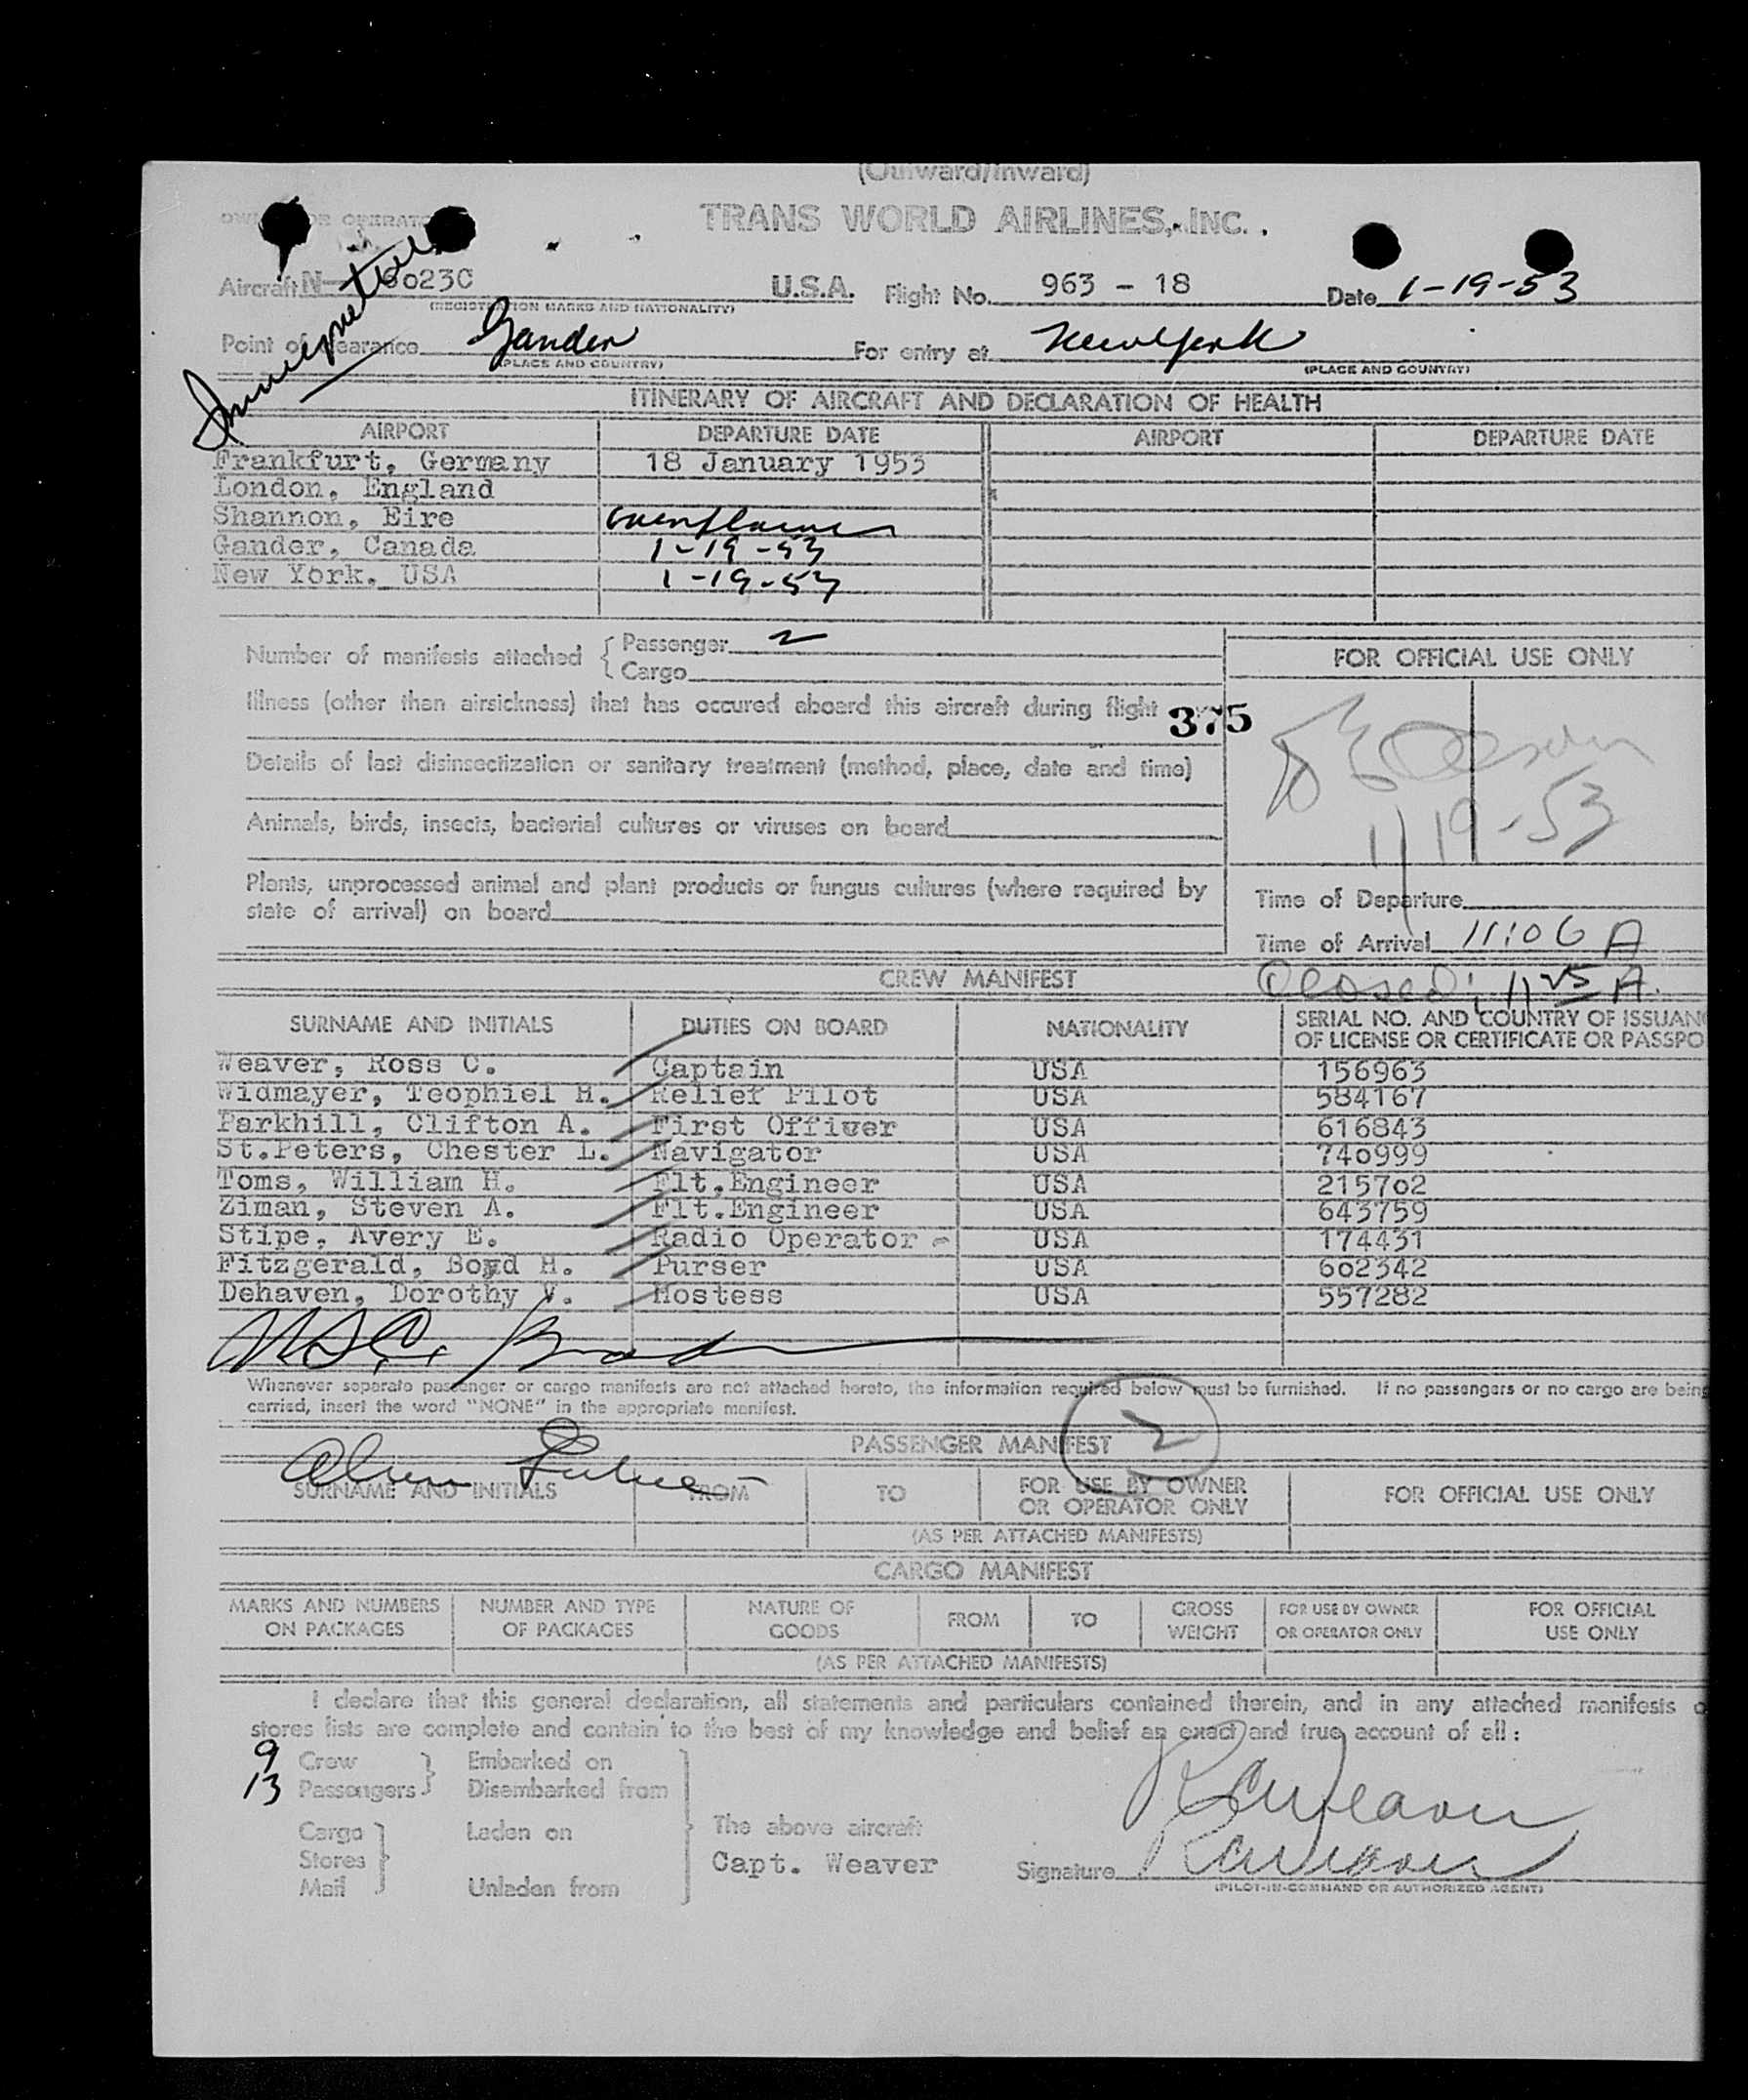 (Outward/Inward)
TRANS WORLD AIRLINES, INC.
Aircraft N- 6023C U.S.A. Flight No. 963 - 18 Date 1-19-53
(REGISTRATION MARKS AND NATIONALITY)
Point of clearance Gander For entry at New York
(PLACE AND COUNTRY) (PLACE AND COUNTRY)
ITINERARY OF AIRCRAFT AND DECLARATION OF HEALTH
AIRPORT DEPARTURE DATE AIRPORT DEPARTURE DATE
Frankfurt, Germany 18 January 1953
London, England
Shannon, Eire
Gander, Canada 1-19-53
New York, USA 1-19-53
Number of manifests attached { Passenger 2
Cargo
FOR OFFICIAL USE ONLY
Illness (other than airsickness) that has occured aboard this aircraft during flight 375
Details of last disinsectization or sanitary treatment (method, place, date and time)
1/19-53
Animals, birds, insects, bacterial cultures or viruses on board
Plants, unprocessed animal and plant products or fungus cultures (where required by
state of arrival) on board
Time of Departure
Time of Arrival 11:06 A
CREW MANIFEST Closed: 11 25 A.
SURNAME AND INITIALS DUTIES ON BOARD NATIONALITY SERIAL NO. AND COUNTRY OF ISSUAN
OF LICENSE OR CERTIFICATE OR PASSPO
Weaver, Ross C. Captain USA 156963
Widmayer, Teophiel H. Relief Pilot USA 584167
Parkhill, Clifton A. First Officer USA 616843
St.Peters, Chester L. Navigator USA 740999
Toms, William H. Flt.Engineer USA 215702
Ziman, Steven A. Flt.Engineer USA 643759
Stipe, Avery E. Radio Operator - USA 174431
Fitzgerald, Boyd H. Purser USA 602342
Dehaven, Dorothy V. Hostess USA 557282
Whenever separate passenger or cargo manifests are not attached hereto, the information required below must be furnished. If no passengers or no cargo are being
carried, insert the word "NONE" in the appropriate manifest.
PASSENGER MANIFEST 2
SURNAME AND INITIALS FROM TO FOR USE BY OWNER
OR OPERATOR ONLY FOR OFFICIAL USE ONLY
(AS PER ATTACHED MANIFESTS)
CARGO MANIFEST
MARKS AND NUMBERS
ON PACKAGES NUMBER AND TYPE
OF PACKAGES NATURE OF
GOODS FROM TO GROSS
WEIGHT FOR USE BY OWNER
OR OPERATOR ONLY FOR OFFICIAL
USE ONLY
(AS PER ATTACHED MANIFESTS)
I declare that this general declaration, all statements and particulars contained therein, and in any attached manifests o
stores lists are complete and contain to the best of my knowledge and belief an exact and true account of all:
9 Crew Embarked on
13 Passengers Disembarked from
Cargo Laden on The above aircraft
Stores Capt. Weaver
Mail Unladen from
RCWeaver
Signature RCWeaver
(PILOT-IN-COMMAND OR AUTHORIZED AGENT)